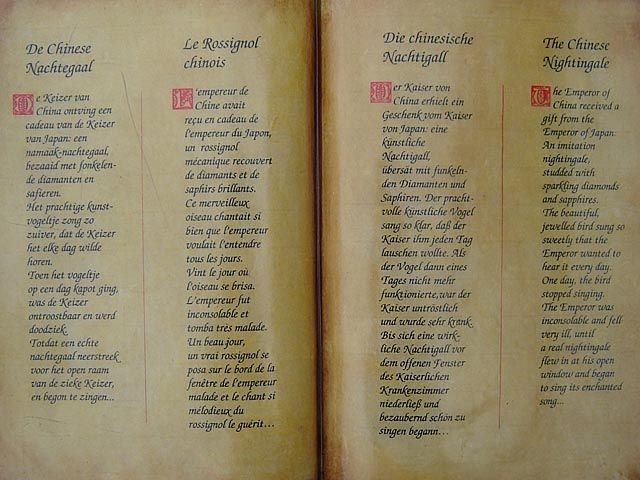 De Chinese
Nachtegaal
De Keizer van
China ontving een
cadeau van de Keizer
van Japan: een
namaak-nachtegaal,
bezaaid met fonkelen-
de diamanten en
safieren.
Het prachtige kunst-
vogeltje zong zo
zuiver, dat de Keizer
het elke dag wilde
horen.
Toen het vogeltje
op een dag kapot ging,
was de Keizer
ontroostbaar en werd
doodziek.
Totdat een echte
nachtegaal neerstreek
voor het open raam
van de zieke Keizer,
en begon te zingen...
Le Rossignol
chinois
L'empereur de
Chine avait
reçu en cadeau de
l'empereur du Japon,
un rossignol
mécanique recouvert
de diamants et de
saphirs brillants.
Ce merveilleux
oiseau chantait si
bien que l'empereur
voulait l'entendre
tous les jours.
Vint le jour où
l'oiseau se brisa.
L'empereur fut
inconsolable et
tomba très malade.
Un beau jour,
un vrai rossignol se
posa sur le bord de la
fenêtre de l'empereur
malade et le chant si
mélodieux du
rossignol le guérit...
Die chinesische
Nachtigall
Der Kaiser von
China erhielt ein
Geschenk vom Kaiser
von Japan: eine
künstliche
Nachtigall,
übersät mit funkeln-
den Diamanten und
Saphiren. Der pracht-
volle künstliche Vogel
sang so klar, daß der
Kaiser ihm jeden Tag
lauschen wollte. Als
der Vogel dann eines
Tages nicht mehr
funktionierte,war der
Kaiser untröstlich
und wurde sehr krank.
Bis sich eine wirk-
liche Nachtigall vor
dem offenen Fenster
des Kaiserlichen
Krankenzimmer
niederließ und
bezaubernd schön zu
singen begann...
The Chinese
Nightingale
The Emperor of
China received a
gift from the
Emperor of Japan:
An imitation
nightingale,
studded with
sparkling diamonds
and sapphires.
The beautiful,
jewelled bird sung so
sweetly that the
Emperor wanted to
hear it every day.
One day, the bird
stopped singing.
The Emperor was
inconsolable and fell
very ill, until
a real nightingale
flew in at his open
window and began
to sing its enchanted
song...